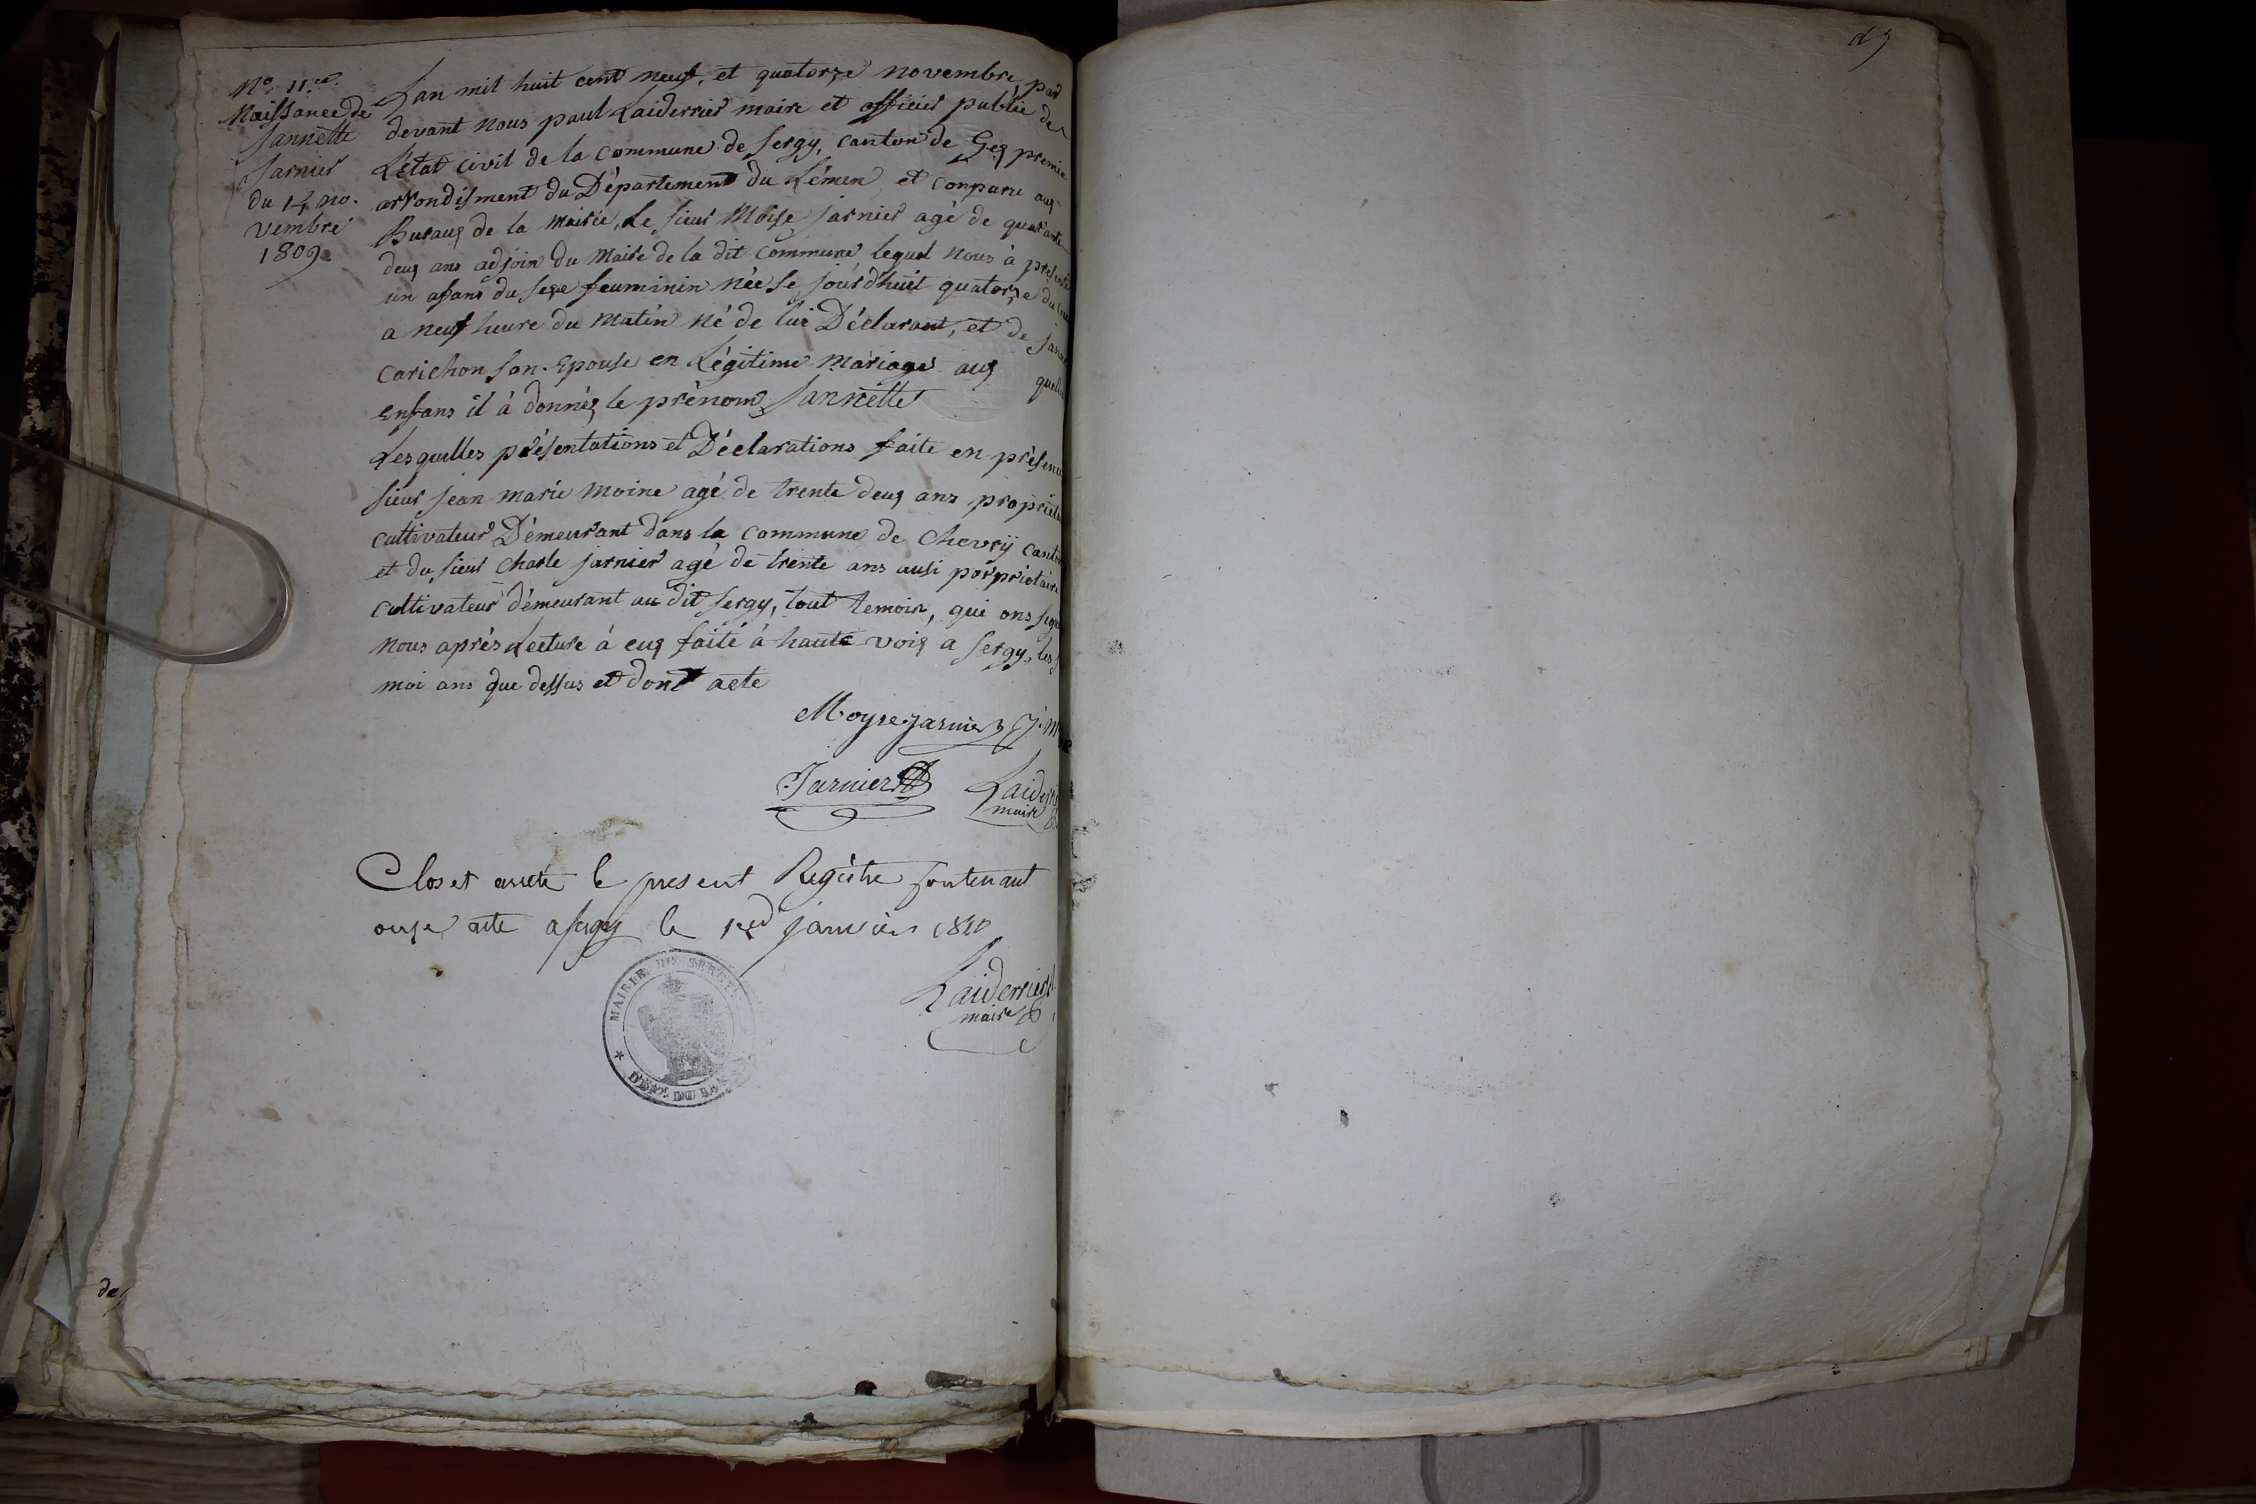 No. 11.e
Naissance de
Jannette
Jarnier
du 14 no.
vembre
1809
Lan mil huit cent neuf, et quatorze novembre, par
devant nous paul Laiderrier maire et officier public de
L'état civil de la commune de Sergy, canton de Gex premie
arrondisment du Département du Léman et conparu aux
Buraux de la mairie, Le sieur Moïse jarnier agé de quarante
deux ans adjoin du maire de la dit commune, lequel nous à présenté
un afans du sexe feuminin née le jourd'huit quatorze du
a neuf heure du matin né de lui Déclarant, et de
carichon son Epouse en Légitime mariage aux quelle
enfans il à donnéz le prénom Jannette
Lesquelles présentations et Déclarations faite en présence
sieur jean marie moine agé de trente deux ans propriéta
cultivateur Démeurant dans la commune de Chevrÿ canton
et du sieur charle jarnier agé de trente ans ausi porpriotaire
cultivateur démeurant au dit sergy, tout temoin, qui ons signé
nous après Lecture à eux faité à haute voix a sergy, les
moi ans que dessus et dont acte
Moyse jarnier J. M
Jarnier Laider
maire
Clos et arreté le present Regitre contenant
onze acte a sergy le 1er janvier 1810
Laiderrier
maire
MAIRIE DE SERGY
DEPT DU LE
de